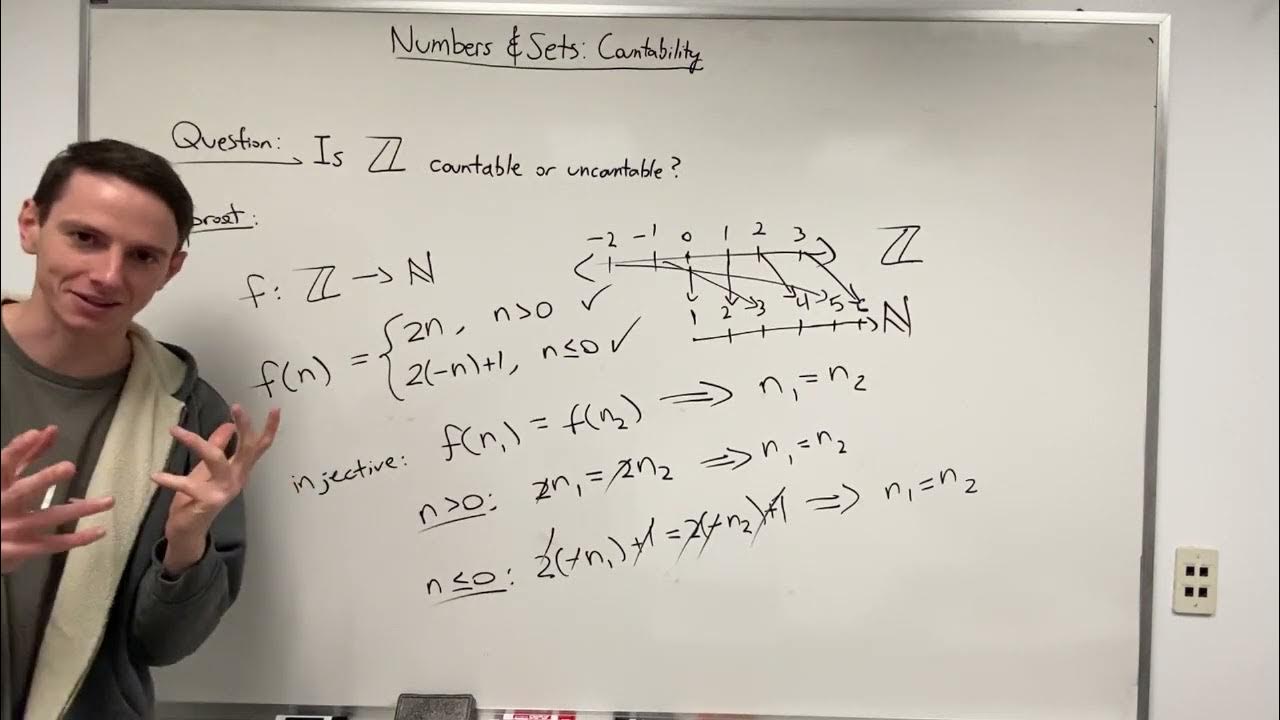 Numbers & Sets: Countability
Question: Is ℤ countable or uncantable?
proof:
-2 -1 0 1 2 3 ℤ
f: ℤ → ℕ
1 2 3 4 5 6 ℕ
f(n) = { 2n, n>0 ✓
2(-n)+1, n≤0 ✓
injective: f(n₁) = f(n₂) ⟹ n₁ = n₂
n>0: 2n₁ = 2n₂ ⟹ n₁ = n₂
n≤0: 2(-n₁)+1 = 2(-n₂)+1 ⟹ n₁ = n₂